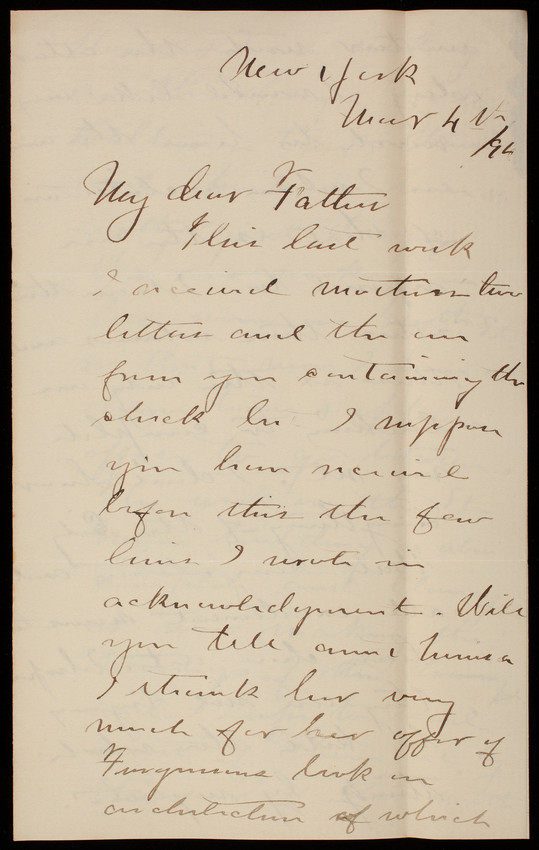 New York
Mar 4th
My dear Father
This last week
I received mothers two
letters and the one
from you containing the
check &c. I suppose
you have received
before this the few
lines I wrote in
acknowledgement. Will
you tell aunt
I thank her very
much for her offer of
Fergusons book on
architecture of which